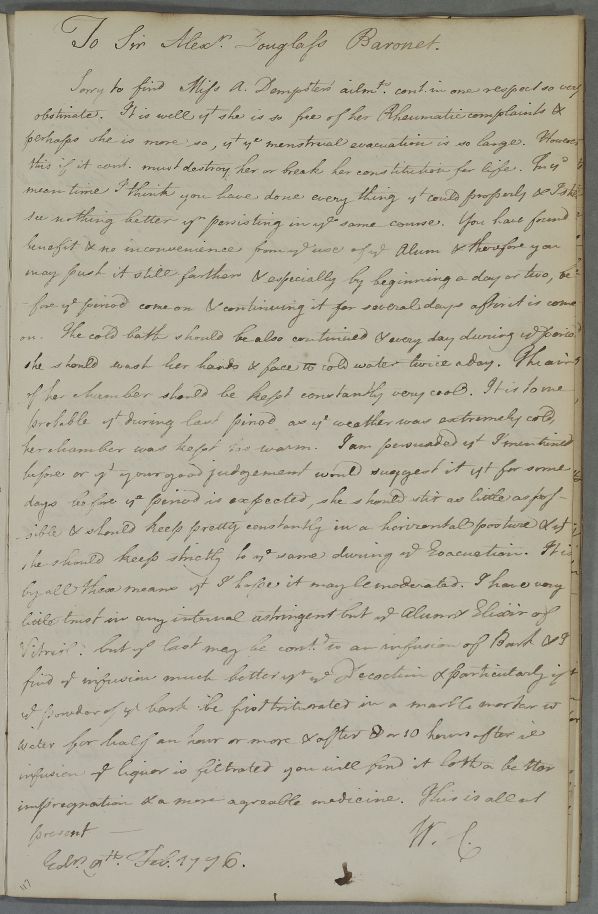 To Sir Alexr. Douglass Baronet.
Sorry to find Miss A. Dempster's ailmt. cont. in one respect so very
obstinate. It is well yt she is so free of her Rheumatic complaints &
perhaps she is more so, yt ye menstrual evacuation is so large. However
this if it cont. must destroy her or break her constitution for life. In ye
mean time I think you have done every thing yt could properly & I
see nothing better yn persisting in ye same course. You have found
benefit & no inconvenience from ye use of ye Alum & therefore you
may push it still farther & especially by beginning a day or two, be-
fore ye period come on & continuing it for several days after it is come
on. The cold bath should be also continued & every day during ye period
she should wash her hands & face in cold water twice a day. The air
of her chamber should be kept constantly very cool. It is to me
probable yt during last period as ye weather was extremely cold,
her chamber was kept too warm. I am persuaded yt I mentioned
before or yt your good judgement would suggest it yt for some
days before ye period is expected, she should stir as little as pos-
sible & should keep pretty constantly in a horizontal posture & yt
she should keep strictly to ye same during ye Evacuation. It is
by all these means yt I hope it may be moderated. I have very
little trust in any internal astringent but ye Alum & Elixir of
Vitriol: but ye last may be contd. to an infusion of Bark & I
find ye infusion much better yn ye Decoction & particularly if
ye powder of ye bark be first triturated in a marble mortar wt
water for half an hour or more & after 8 or 10 hours after ye
infusion ye liquor is filtrated you will find it both a better
impregnation & a more agreable medicine. This is all at
present —
W. C.
Edr. 9th. Feb. 1776.
117